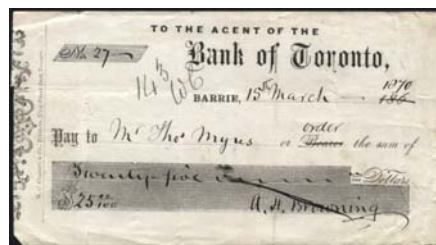 TO THE AGENT OF THE
No. 27
Bank of Toronto,
143
WE
BARRIE, 15th March 1870
186
Pay to Mr Thos Myres or Bearer order the sum of
Twenty five Dollars
$25 00/100
A. H. Browning